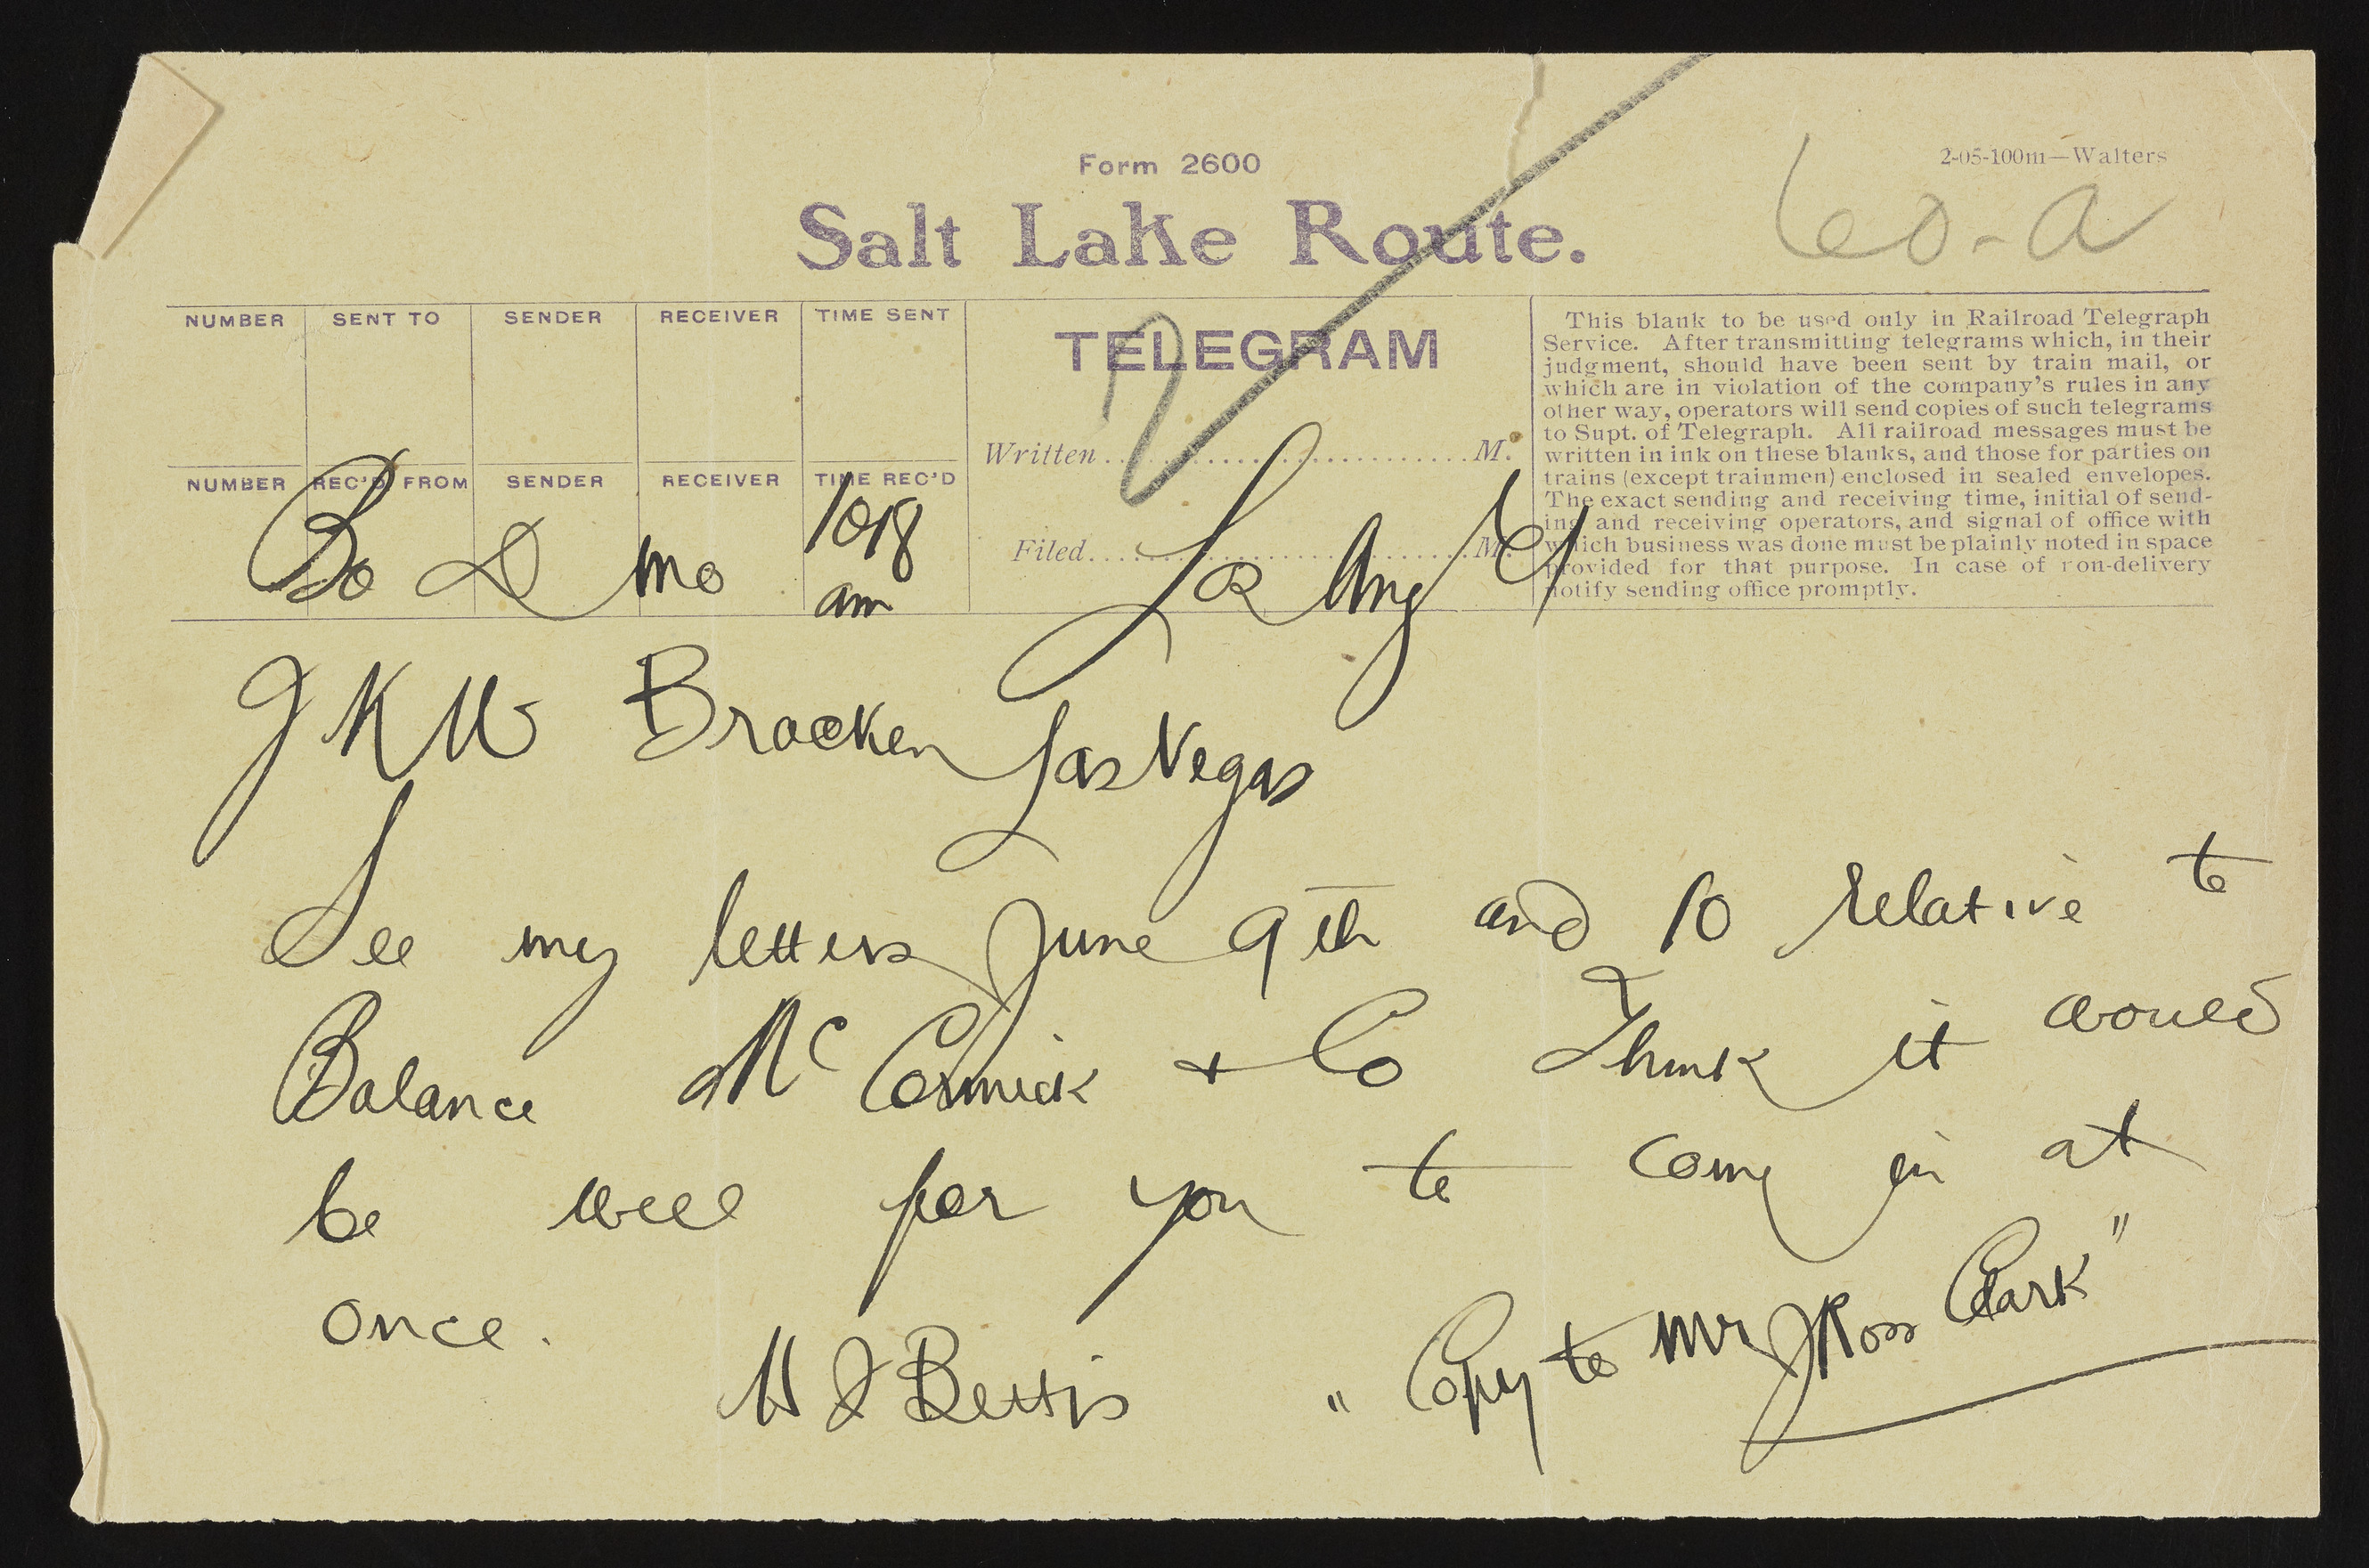 Form 2600
2-05-100m—Walters
60-a
Salt Lake Route.
NUMBER SENT TO SENDER RECEIVER TIME SENT
TELEGRAM
Written M.
NUMBER REC'D FROM SENDER RECEIVER TIME REC'D
Bo D mo 1018 am
Filed M.
This blank to be used only in Railroad Telegraph
Service. After transmitting telegrams which, in their
judgment, should have been sent by train mail, or
which are in violation of the company's rules in any
other way, operators will send copies of such telegrams
to Supt. of Telegraph. All railroad messages must be
written in ink on these blanks, and those for parties on
trains (except trainmen) enclosed in sealed envelopes.
The exact sending and receiving time, initial of send-
ing and receiving operators, and signal of office with
which business was done must be plainly noted in space
provided for that purpose. In case of non-delivery
notify sending office promptly.
Los Ang
Bracken Las Vegas
See my letters June 9th and 10 relative to
Balance McCormick + Co Think it would
be well for you to come in at
once.
H I Bettis "Copy to Mr J Ross Clark"